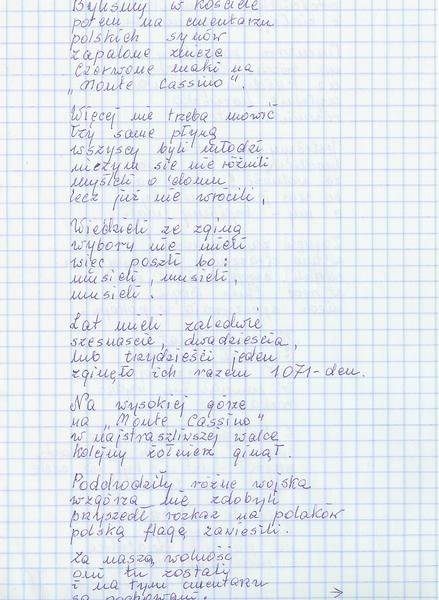 Byliśmy w kościele
potem na cmentarzu
polskich synów
zapalone znicze
Czerwone maki na
„Monte Cassino".
Więcej nie trzeba mówić
łzy same płyną
wszyscy byli młodzi
niczym się nie różnili
myśleli o domu
lecz już nie wrócili,
Wiedzieli że zginą
wybory nie mieli
więc poszli bo:
musieli, musieli,
musieli.
Lat mieli zaledwie
szesnaście, dwadzieścia,
lub trzydzieści jeden
zginęło ich razem 1071-den.
Na wysokiej górze
na „Monte Cassino"
w najstraszliwszej walce
kolejny żołnierz ginął.
Podchodziły różne wojska
wzgórza nie zdobyli
przyszedł rozkaz na polaków
polską flagę zawiesili.
Za naszą wolność
oni tu zostali
i na tym cmentarzu
są pochowani.
→